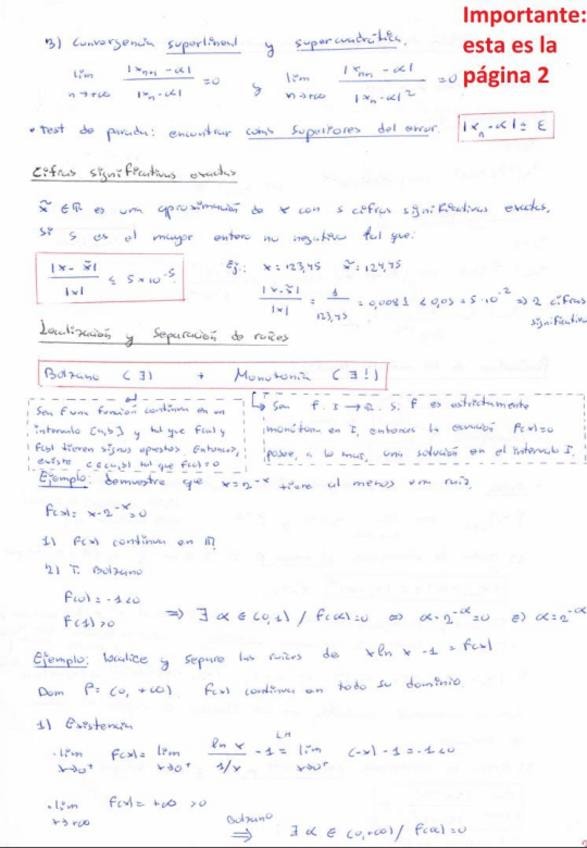 Importante:
esta es la
página 2
3) Convergencia superlineal y supercuadrática.
lim n→+∞ |xn+1 - α| / |xn - α| = 0 y lim n→+∞ |xn+1 - α| / |xn - α|² = 0
• Test de parada: encontrar cotas superiores del error. |xn - α| ≤ ε
Cifras significativas exactas
x̃ ∈ ℝ es una aproximación de x con s cifras significativas exactas,
si s es el mayor entero no negativo tal que:
|x - x̃| / |x| ≤ 5×10^-s
Ej: x = 123,45 x̃ = 124,45
|x - x̃| / |x| = 1 / 123,45 = 0,0081 < 0,05 = 5·10^-2 => 2 cifras
significativas
Localización y separación de raíces
Bolzano (∃) + Monotonía (∃!)
Sea f una función continua en un
intervalo [a,b] y tal que f(a) y
f(b) tienen signos opuestos. Entonces,
existe c ∈ (a,b) tal que f(c)=0
Sea f: I → ℝ. Si f es estrictamente
monótona en I, entonces la ecuación f(x)=0
posee, a lo más, una solución en el intervalo I.
Ejemplo: demuestre que x = 2^-x tiene al menos una raíz.
f(x) = x - 2^-x = 0
1) f(x) continua en ℝ
2) T. Bolzano
f(0) = -1 < 0
f(1) > 0
=> ∃ α ∈ (0,1) / f(α)=0 <=> α - 2^-α = 0 <=> α = 2^-α
Ejemplo: localice y separe las raíces de x ln x - 1 = f(x)
Dom f = (0, +∞). f(x) continua en todo su dominio.
1) Existencia
· lim x→0⁺ f(x) = lim x→0⁺ ln x / 1/x - 1 =^LH lim x→0⁺ (-x) - 1 = -1 < 0
· lim x→+∞ f(x) = +∞ > 0
Bolzano => ∃ α ∈ (0,+∞) / f(α) = 0